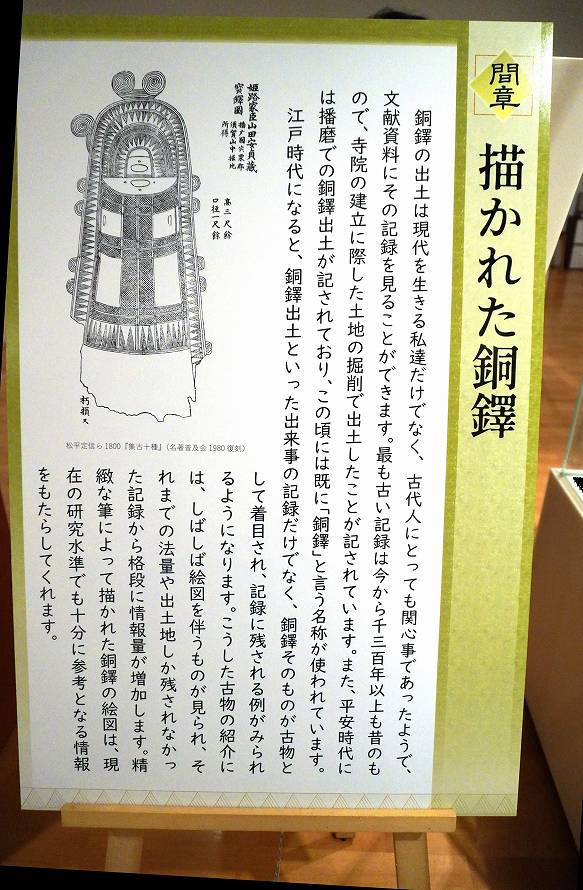 間章
描かれた銅鐸
銅鐸の出土は現代を生きる私達だけでなく、古代人にとっても関心事であったようで、
文献資料にその記録を見ることができます。最も古い記録は今から千三百年以上も昔のも
ので、寺院の建立に際した土地の掘削で出土したことが記されています。また、平安時代に
は播磨での銅鐸出土が記されており、この頃には既に「銅鐸」と言う名称が使われています。
江戸時代になると、銅鐸出土といった出来事の記録だけでなく、銅鐸そのものが古物と
して着目され、記録に残される例がみられ
るようになります。こうした古物の紹介に
は、しばしば絵図を伴うものが見られ、そ
れまでの法量や出土地しか残されなかっ
た記録から格段に情報量が増加します。精
緻な筆によって描かれた銅鐸の絵図は、現
在の研究水準でも十分に参考となる情報
をもたらしてくれます。
姫路家臣山田安貞蔵
寶鐸圖
播磨国宍粟郡
須賀山中掘地
所得
高三尺餘
口径一尺餘
朽損ス
松平定信ら1800『集古十種』(名著普及会1980復刻)